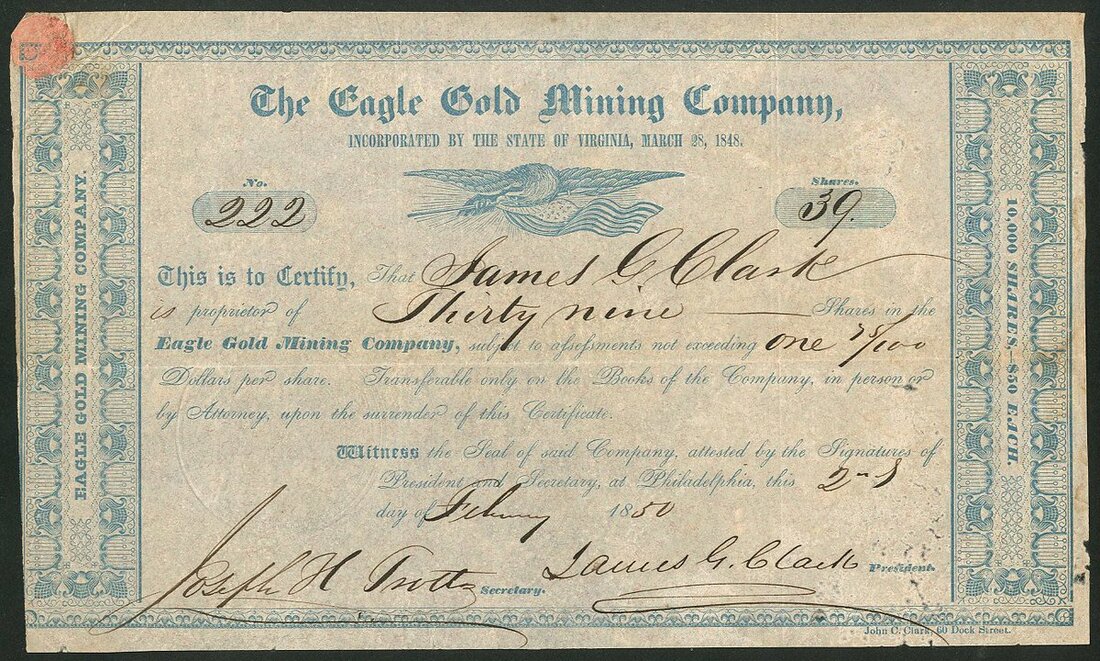 The Eagle Gold Mining Company,
INCORPORATED BY THE STATE OF VIRGINIA, MARCH 28, 1848.
No.
222
Shares.
39.
This is to Certify, That James G Clark
is proprietor of Thirty nine Shares in the
Eagle Gold Mining Company, subject to assessments not exceeding one 75/100
Dollars per share. Transferable only on the Books of the Company, in person or
by Attorney, upon the surrender of this Certificate.
Witness the Seal of said Company, attested by the Signatures of
President and Secretary, at Philadelphia, this 2nd
day of February 1850
Joseph H Trotter Secretary.
James G. Clark President.
John C. Clark, 60 Dock Street.
EAGLE GOLD MINING COMPANY.
10,000 SHARES—$50 EACH.